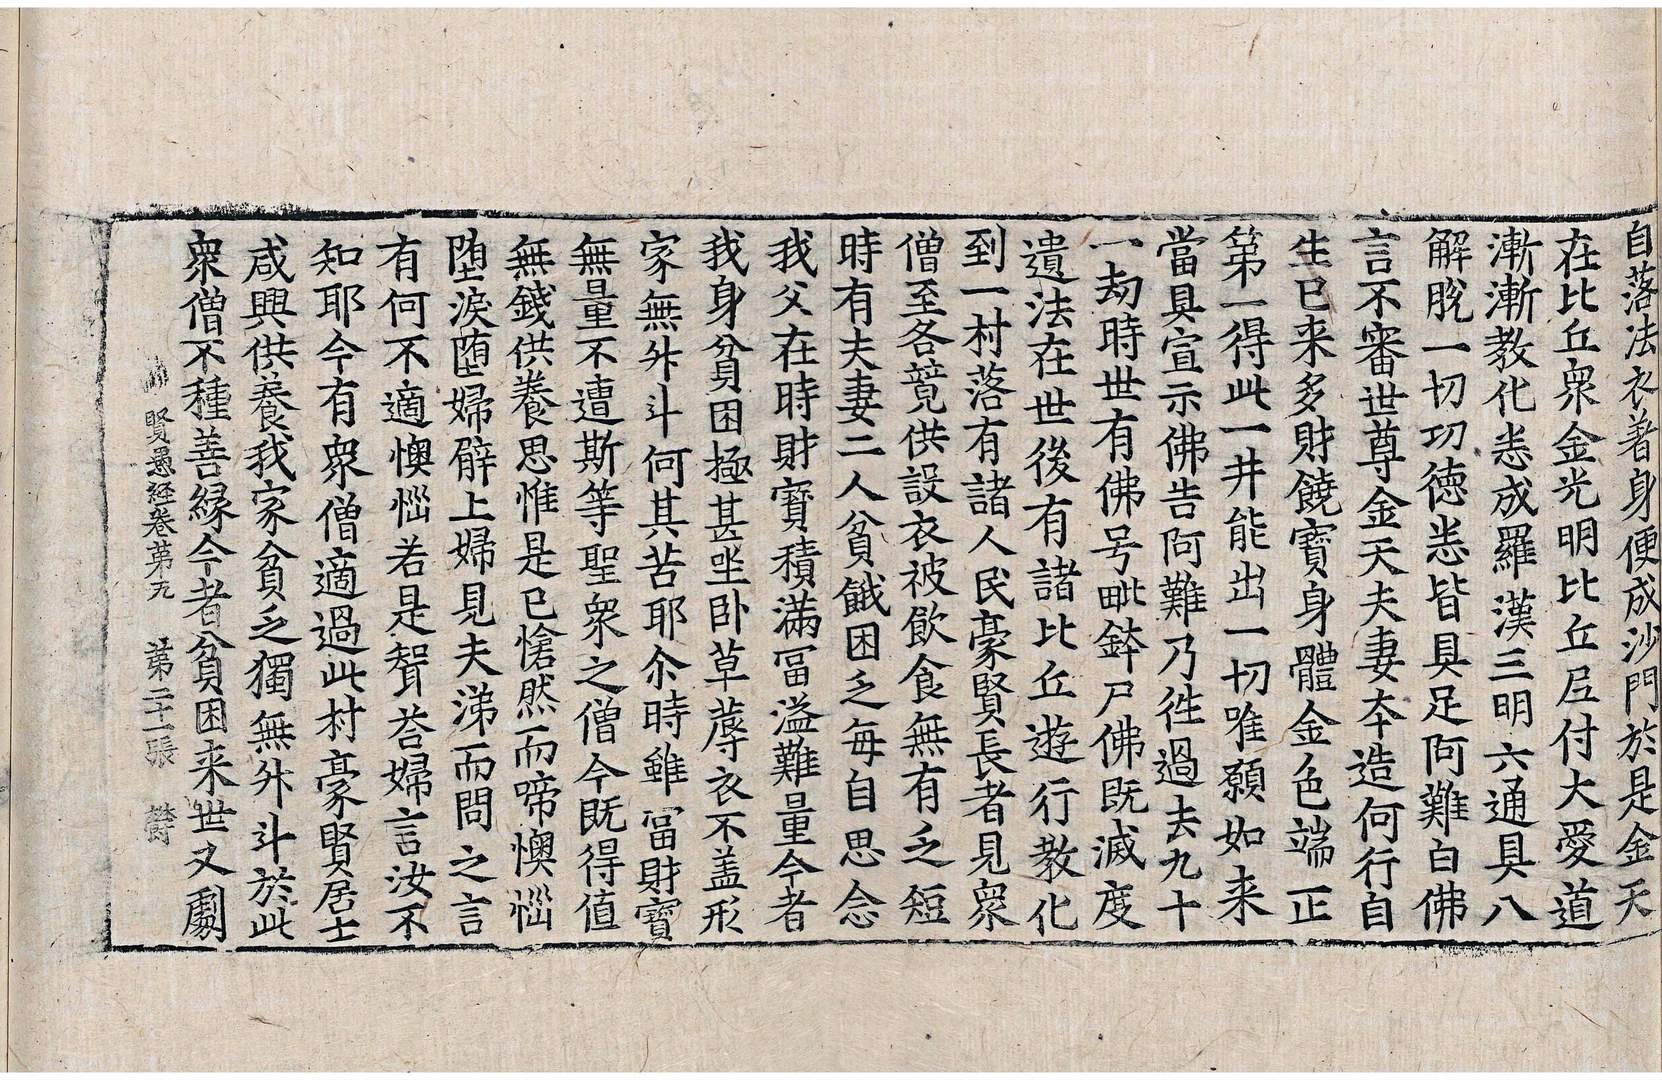 自落法衣着身便成沙門於是金天
在比丘衆金光明比丘尼付大愛道
漸漸教化悉成羅漢三明六通具八
解脫一切功德悉皆具足阿難白佛
言不審世尊金天夫妻夲造何行自
生已来多財饒寶身體金色端正
第一得此一井能出一切唯願如来
當具宣示佛告阿難乃徃過去九十
一劫時世有佛号毗鉢尸佛既滅度
遺法在世後有諸比丘遊行教化
到一村落有諸人民豪賢長者見衆
僧至各竟供設衣被飲食無有乏短
時有夫妻二人貧餓困乏每自思念
我父在時財寶積滿冨溢難量今者
我身貧困極甚坐卧草蓐衣不盖形
家無升斗何其苦耶尒時雖冨財寶
無量不遭斯等聖衆之僧今既得值
無錢供養思惟是已愴然而啼懊惱
墮淚墮婦臂上婦見夫涕而問之言
有何不適懊惱若是聟荅婦言汝不
知耶今有衆僧適過此村豪賢居士
咸興供養我家貧乏獨無升斗於此
衆僧不種善緣今者貧困来世又劇
賢愚經卷第九 第二十一張 欝